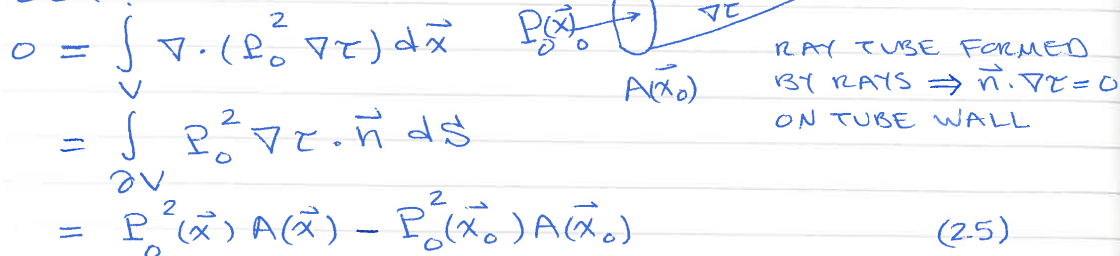 0 = ∫_V ∇·(P₀² ∇τ) dx⃗
P₀(x⃗₀)
∇τ
A(x⃗₀)
RAY TUBE FORMED
BY RAYS ⇒ n⃗·∇τ = 0
ON TUBE WALL
= ∫_∂V P₀² ∇τ·n⃗ dS
= P₀²(x⃗) A(x⃗) − P₀²(x⃗₀) A(x⃗₀) (2.5)